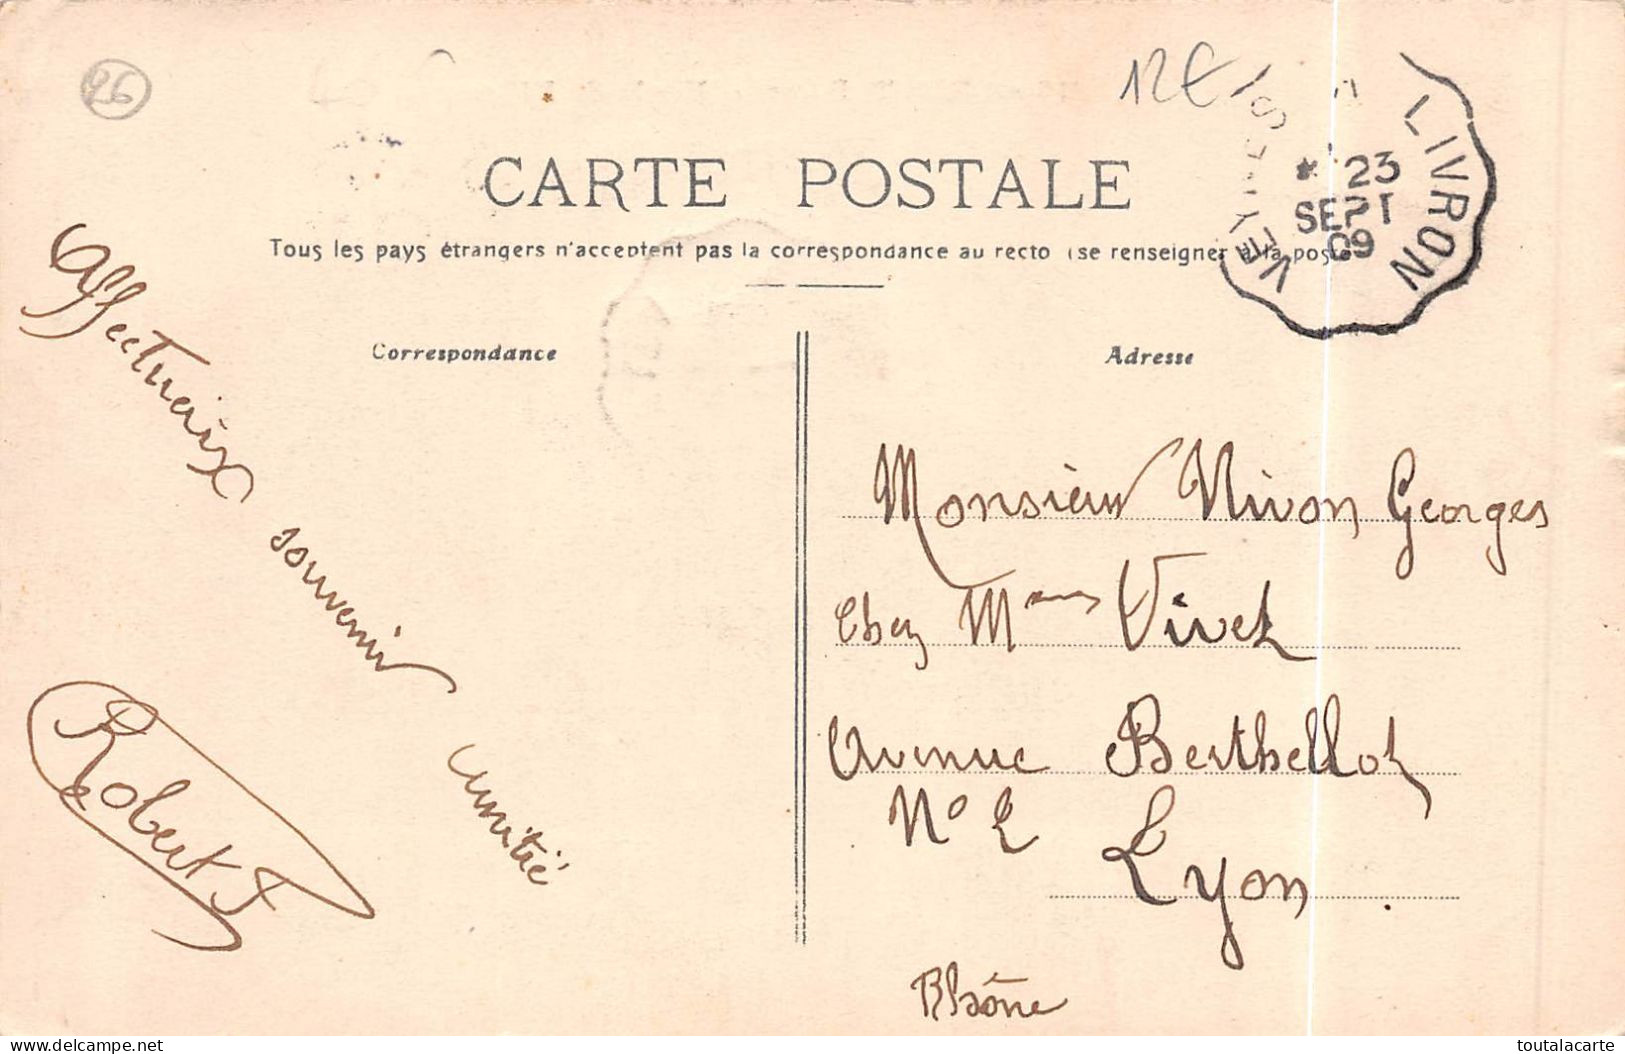 26
12€
VEYNES A LIVRON
* 23
SEPT
09
CARTE POSTALE
Tous les pays étrangers n'acceptent pas la correspondance au recto (se renseigner à la poste
Correspondance
Adresse
Affectueux souvenir
amitié
Robert
Monsieur Nivon Georges
Chez M Vivet
Avenue Berthellot
N° 2
Lyon
Rhône
delcampe.net
toutalacarte